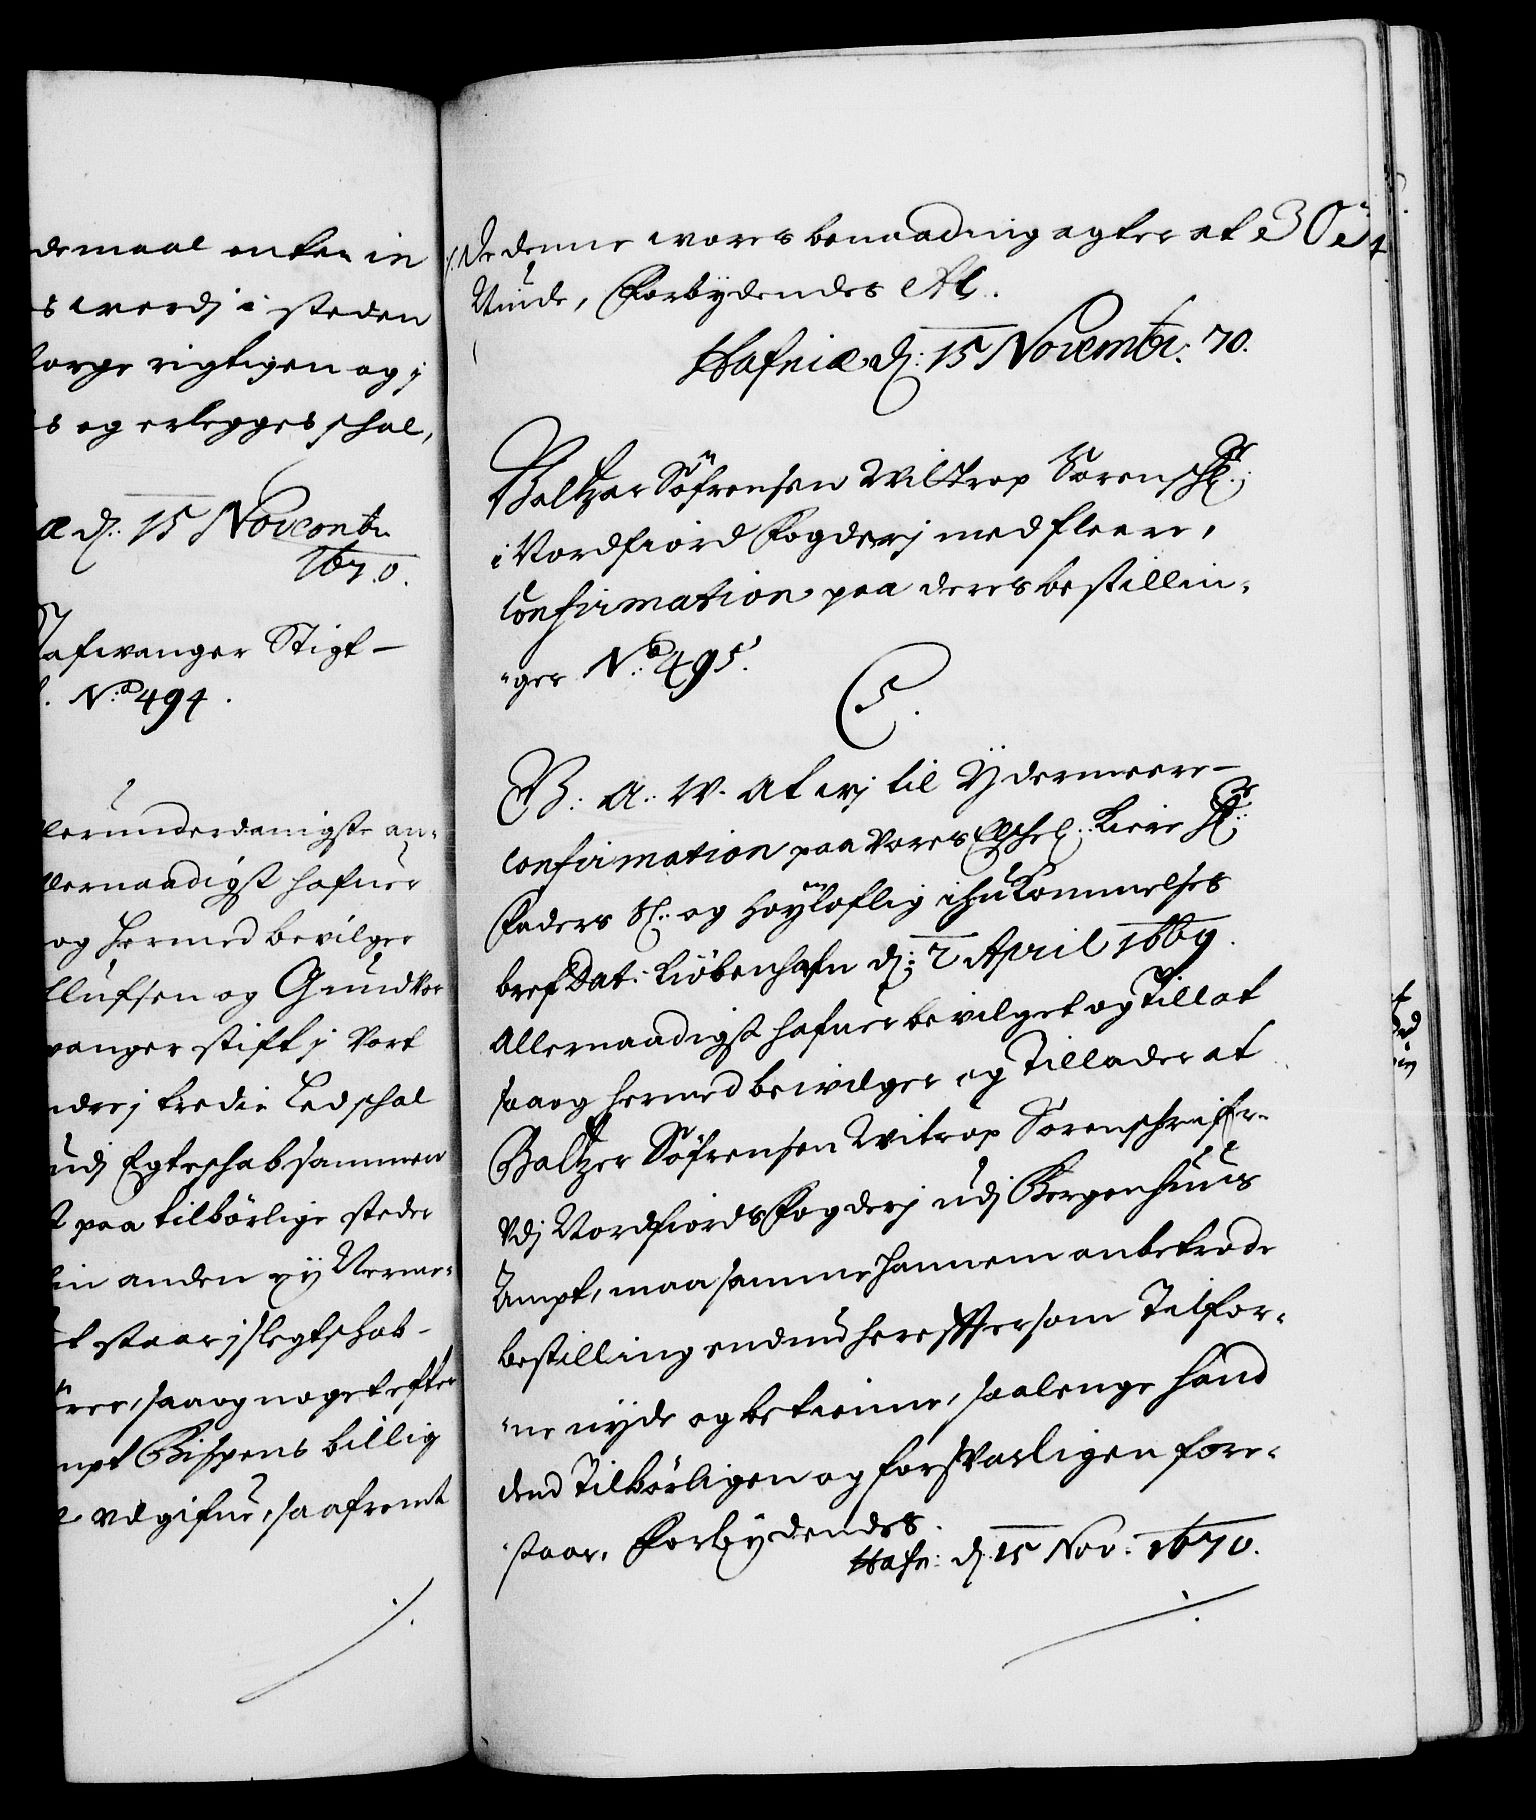 demaal enten in
s werdj i steden
sorge rigtigen og j
s og erlegges schal,
æ dj: 15 Novembr:
1670.
Stafwanger Stigt –
. No 494.
llerunderdanigste an-
llernaadigst hafuer
og hermed bevilger
lluf​sen og Gundvor
vanger stift j Vort
ndrej tredie Led schal
udj Egteschab sammen
t paa tilbørlige steder
in anden
t staar j slegtschab
saa og noget efter
mpt Bispens billig
vdgifue, saafremt
De denne wores benaading agter at
Niude, Forbydendes Al.
301
Hafniæ dj: 15 Novembr: 70.
Baltzar Söfrensen Wiltrop Sorenschr:
i Nordfiord Fogderj med fleere,
Confirmation paa deres bestillin-
ger No: 495.
C5.
B: A: W. At wj til Ydermeere
confirmation paa Vores Elschel: Kiere Hr:
Faders Sl: og Høyloflig ihukommelses
bref Dat: Kiöbenhafn dj: 2 April 1669.
Allernaadigst hafuer bevilget og Tilladt
saa og hermed bewilger og Tillader at
Baltzer Söfrensen Witrop Sorenschrifr-
Vdj Nordfiords Fogderj udj Bergenhuus
Ampt, maa samme hannem anbetrode
bestilling endnu herefter som Tilfor-
ne niyde og betienne, saalenge hand
dend Tilbörligen og forsvarligen fore-
staar, Forbydendes.
Hafn: dj 15 Nov: 1670.